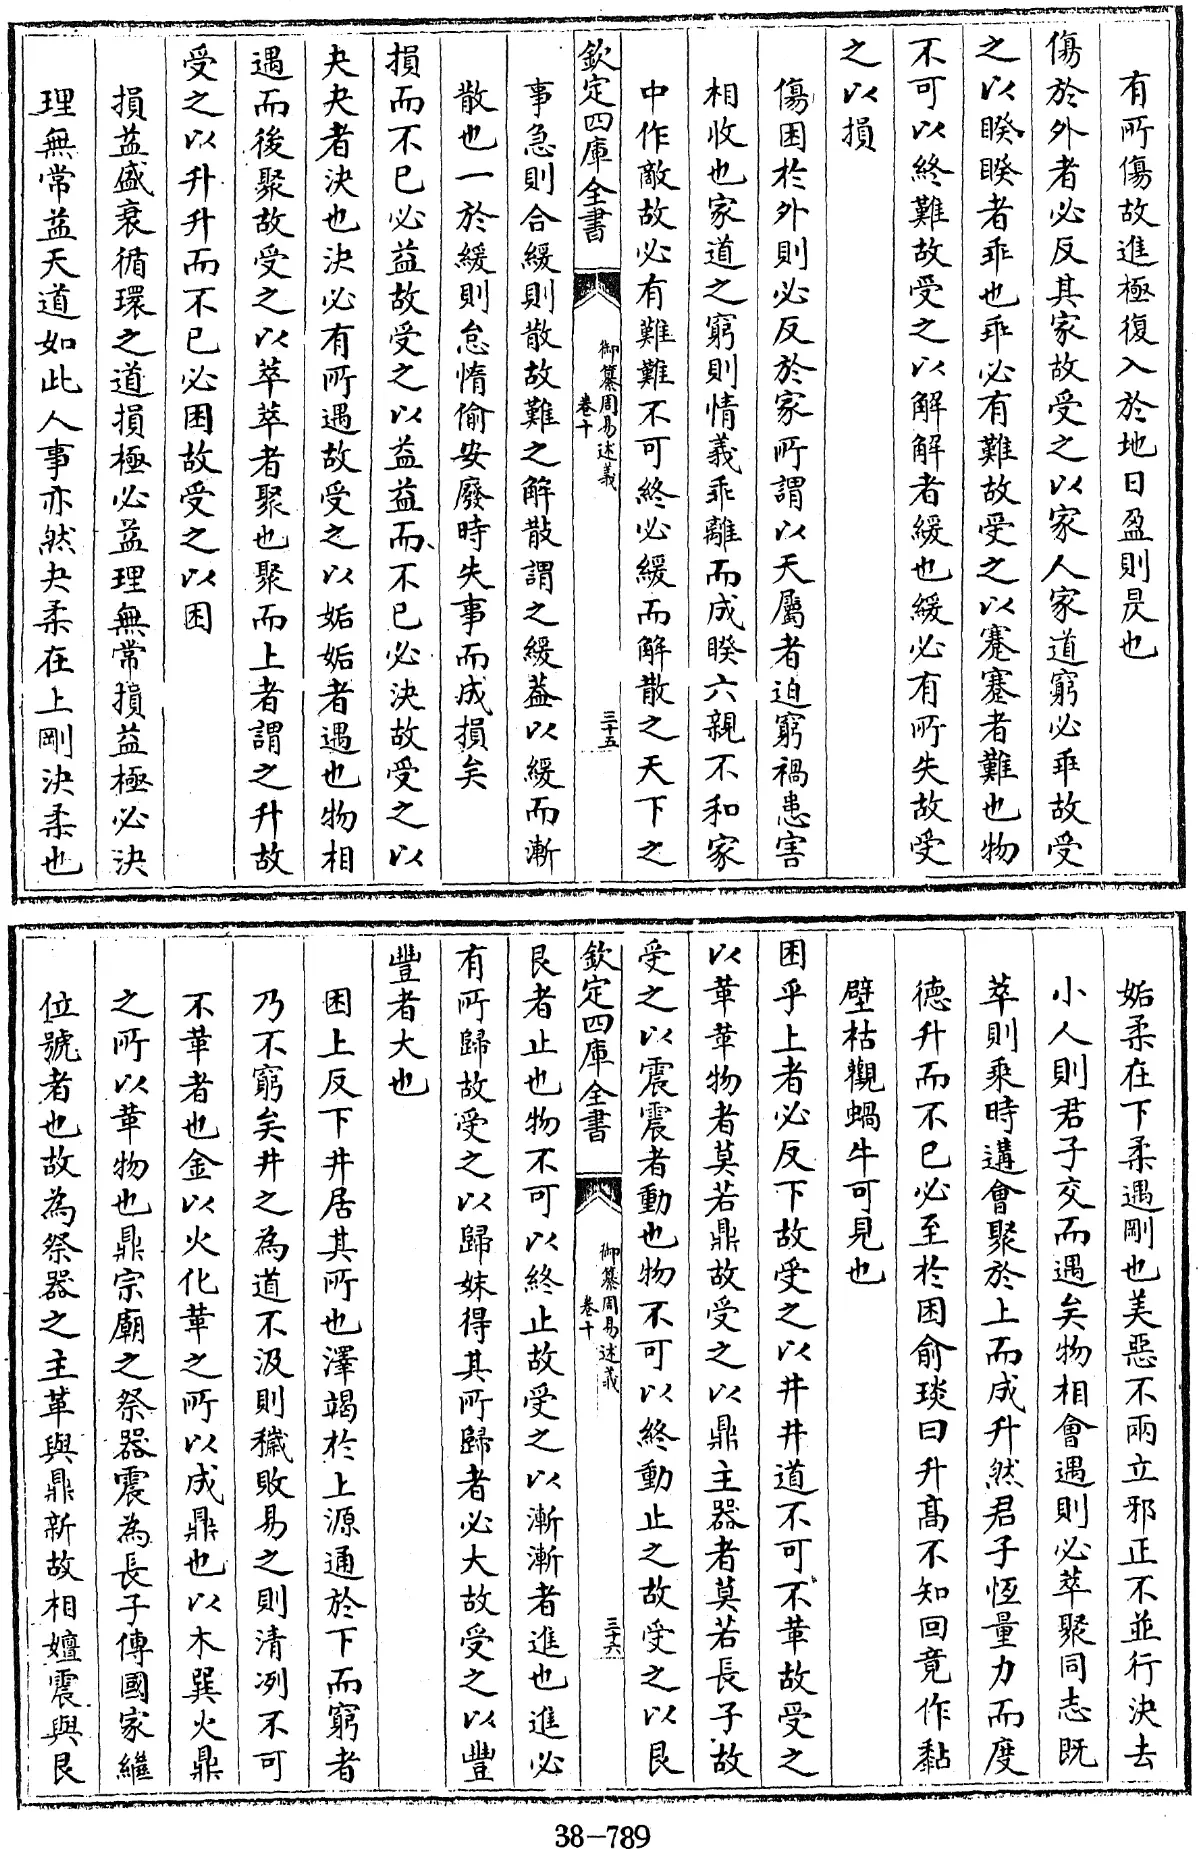 有所傷故進極復入於地日盈則昃也
傷於外者必反其家故受之以家人家道窮必乖故受
之以睽睽者乖也乖必有難故受之以蹇蹇者難也物
不可以終難故受之以解解者緩也緩必有所失故受
之以損
傷困於外則必反於家所謂以天屬者迫窮禍患害
相收也家道之窮則情義乖離而成睽六親不和家
中作敵故必有難難不可終必緩而解散之天下之
欽定四庫全書
御纂周易述義
卷十
三十五
事急則合緩則散故難之解散謂之緩蓋以緩而漸
散也一於緩則怠惰偷安廢時失事而成損矣
損而不已必益故受之以益益而不已必決故受之以
夬夬者決也決必有所遇故受之以姤姤者遇也物相
遇而後聚故受之以萃萃者聚也聚而上者謂之升故
受之以升升而不已必困故受之以困
損益盛衰循環之道損極必益理無常損益極必決
理無常益天道如此人事亦然夬柔在上剛決柔也
姤柔在下柔遇剛也美惡不兩立邪正不並行決去
小人則君子交而遇矣物相會遇則必萃聚同志既
萃則乘時遘會聚於上而成升然君子恆量力而度
德升而不已必至於困俞琰曰升高不知回竟作黏
壁枯觀蝸牛可見也
困乎上者必反下故受之以井井道不可不革故受之
以革革物者莫若鼎故受之以鼎主器者莫若長子故
受之以震震者動也物不可以終動止之故受之以艮
欽定四庫全書
御纂周易述義
卷十
三十六
艮者止也物不可以終止故受之以漸漸者進也進必
有所歸故受之以歸妹得其所歸者必大故受之以豐
豐者大也
困上反下井居其所也澤竭於上源通於下而窮者
乃不窮矣井之為道不汲則穢敗易之則清冽不可
不革者也金以火化革之所以成鼎也以木巽火鼎
之所以革物也鼎宗廟之祭器震為長子傳國家繼
位號者也故為祭器之主革與鼎新故相嬗震與艮
38-789